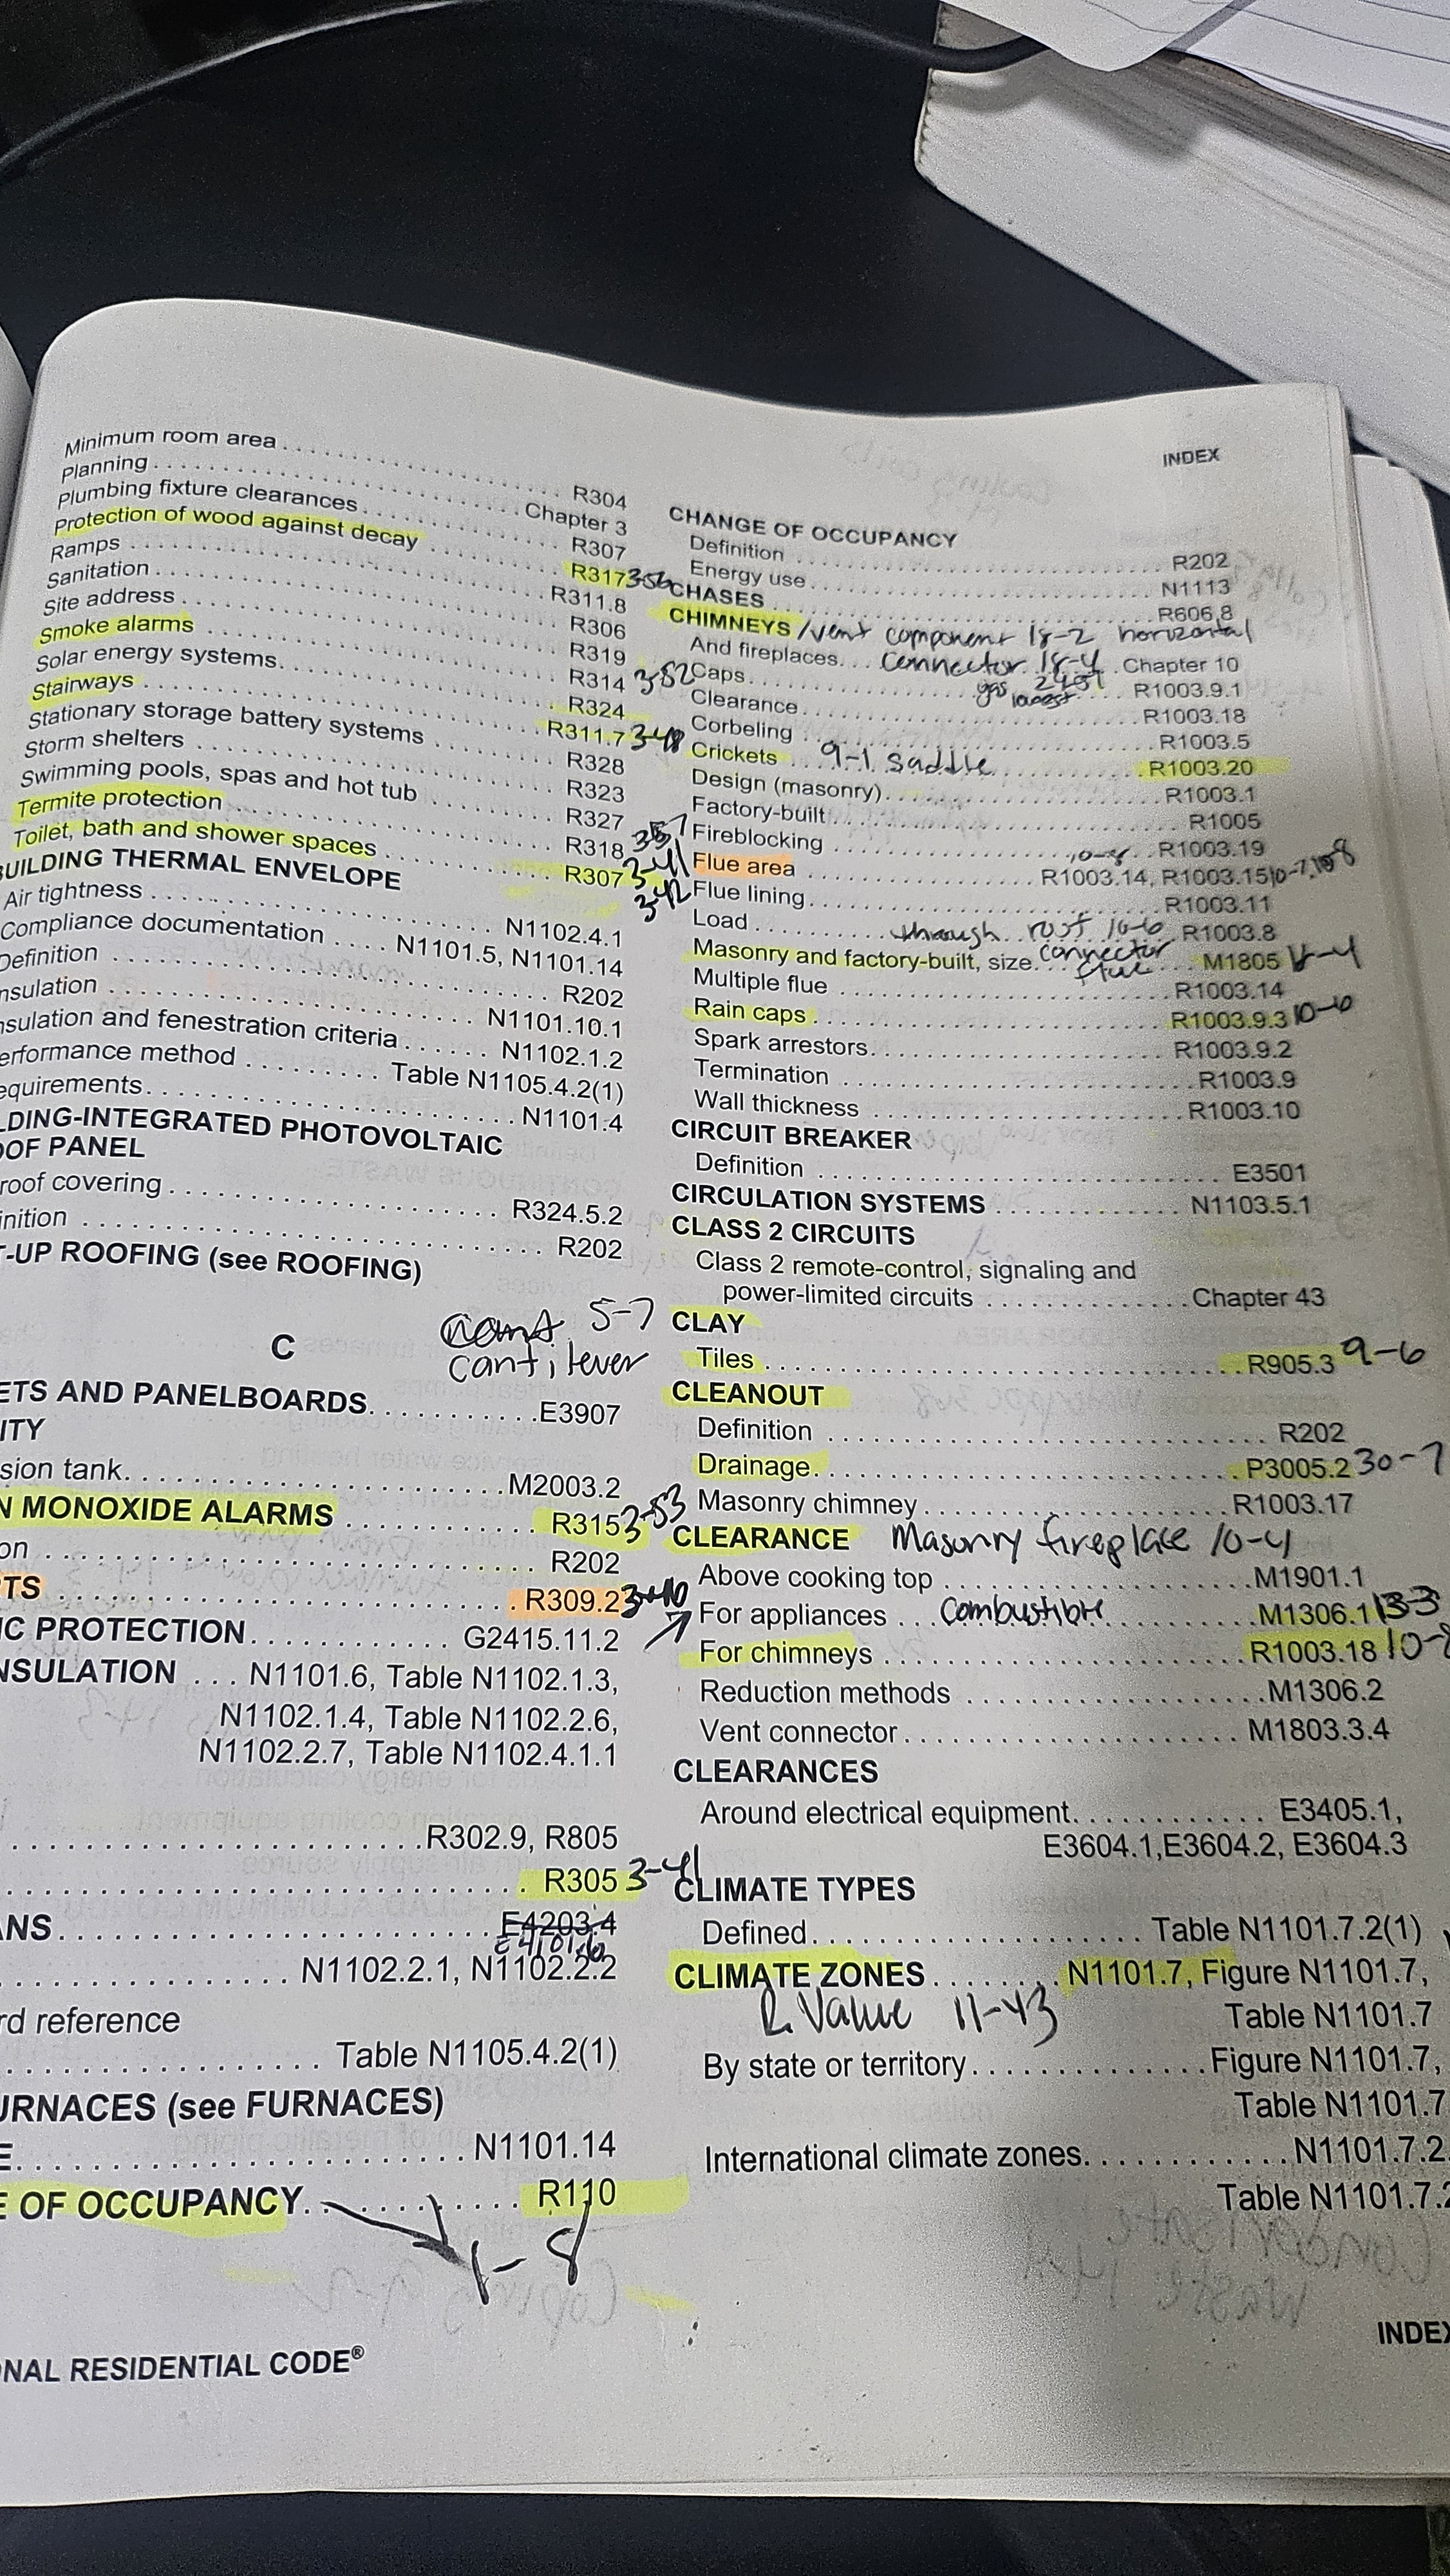 INDEX
Minimum room area . . . . R304
Planning . . . . Chapter 3
Plumbing fixture clearances . . . . R307
Protection of wood against decay . . . . R317 3-56
Ramps . . . . R311.8
Sanitation . . . . R306
Site address . . . . R319
Smoke alarms . . . . R314 3-52
Solar energy systems . . . . R324
Stairways . . . . R311.7 3-48
Stationary storage battery systems . . . . R328
Storm shelters . . . . R323
Swimming pools, spas and hot tub . . . . R327
Termite protection . . . . R318
Toilet, bath and shower spaces . . . . R307 3-41
3-42
BUILDING THERMAL ENVELOPE
Air tightness . . . . N1102.4.1
Compliance documentation . . . . N1101.5, N1101.14
Definition . . . . R202
nsulation . . . . N1101.10.1
nsulation and fenestration criteria . . . . N1102.1.2
erformance method . . . . Table N1105.4.2(1)
equirements . . . . N1101.4
LDING-INTEGRATED PHOTOVOLTAIC
OOF PANEL
roof covering . . . . R324.5.2
inition . . . . R202
T-UP ROOFING (see ROOFING)
5-7
C cantilever
ETS AND PANELBOARDS . . . . E3907
ITY
sion tank . . . . M2003.2
N MONOXIDE ALARMS . . . . R315 3-53
on . . . . R202
TS . . . . R309.2 3-40
IC PROTECTION . . . . G2415.11.2
NSULATION . . . N1101.6, Table N1102.1.3,
N1102.1.4, Table N1102.2.6,
N1102.2.7, Table N1102.4.1.1
. . . . R302.9, R805
. . . . R305 3-41
ANS . . . . E4203.4
E4101.6
. . . . N1102.2.1, N1102.2.2
rd reference
. . . . Table N1105.4.2(1)
URNACES (see FURNACES)
E . . . . N1101.14
E OF OCCUPANCY . . . . R110
1-8
ONAL RESIDENTIAL CODE®
CHANGE OF OCCUPANCY
Definition . . . . R202
Energy use . . . . N1113
CHASES . . . . R606.8
CHIMNEYS / vent component 18-2 horizontal
And fireplaces . . . connector 18-4 . Chapter 10
Caps . . . . gas . . . . R1003.9.1
Clearance . . . . R1003.18
Corbeling . . . . R1003.5
Crickets . . 9-1 saddle . . . . R1003.20
Design (masonry) . . . . R1003.1
Factory-built . . . . R1005
Fireblocking . . . . R1003.19
Flue area . . . . 10-8 R1003.14, R1003.15 10-7, 10-8
Flue lining . . . . R1003.11
Load . . . . through roof 10-6 R1003.8
Masonry and factory-built, size . . connector flue . . M1805 18-4
Multiple flue . . . . R1003.14
Rain caps . . . . R1003.9.3 10-6
Spark arrestors . . . . R1003.9.2
Termination . . . . R1003.9
Wall thickness . . . . R1003.10
CIRCUIT BREAKER
Definition . . . . E3501
CIRCULATION SYSTEMS . . . . N1103.5.1
CLASS 2 CIRCUITS
Class 2 remote-control, signaling and
power-limited circuits . . . . Chapter 43
CLAY
Tiles . . . . R905.3 9-6
CLEANOUT
Definition . . . . R202
Drainage . . . . P3005.2 30-7
Masonry chimney . . . . R1003.17
CLEARANCE Masonry fireplace 10-4
Above cooking top . . . . M1901.1
For appliances . . . Combustible . . . . M1306.1 13-3
For chimneys . . . . R1003.18 10-8
Reduction methods . . . . M1306.2
Vent connector . . . . M1803.3.4
CLEARANCES
Around electrical equipment . . . . E3405.1,
E3604.1,E3604.2, E3604.3
CLIMATE TYPES
Defined . . . . Table N1101.7.2(1)
CLIMATE ZONES . . . . N1101.7, Figure N1101.7,
R Value 11-43 Table N1101.7
By state or territory . . . . Figure N1101.7,
Table N1101.7
International climate zones . . . . N1101.7.2
Table N1101.7.2
INDEX